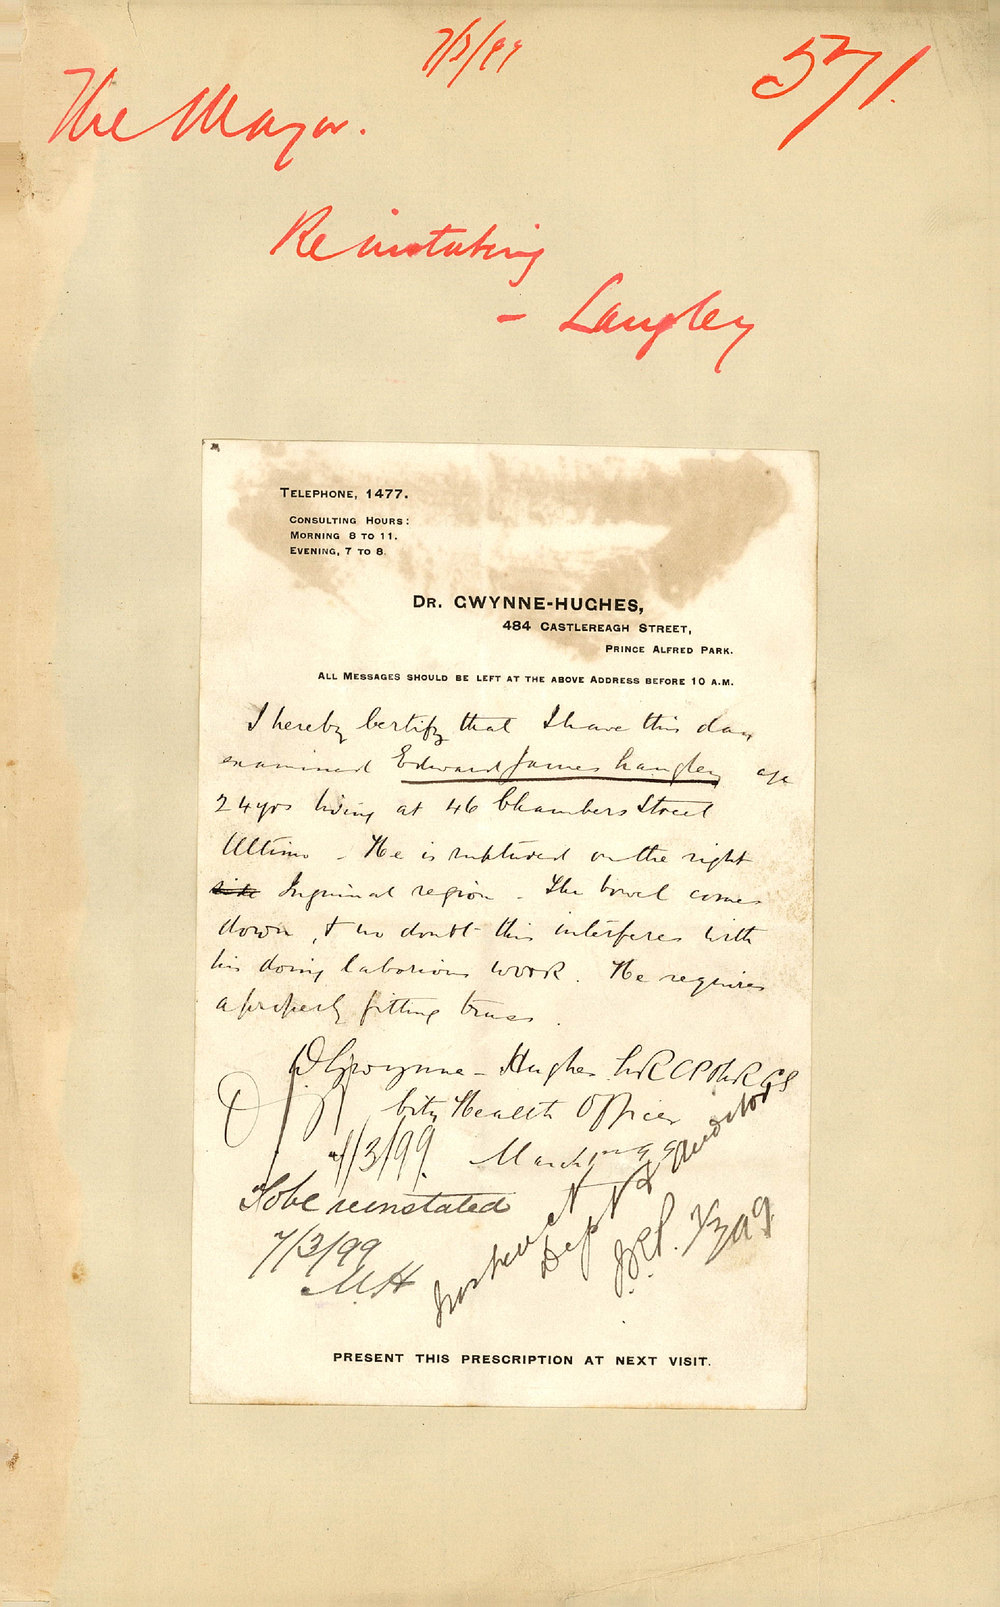 7/3/99
571.
The Mayor.
Reinstating
- Langley
TELEPHONE, 1477.
CONSULTING HOURS:
MORNING 8 TO 11.
EVENING, 7 TO 8.
DR. GWYNNE-HUGHES,
484 CASTLEREAGH STREET,
PRINCE ALFRED PARK.
ALL MESSAGES SHOULD BE LEFT AT THE ABOVE ADDRESS BEFORE 10 A.M.
I hereby certify that I have this day
examined Edward James Langley age
24 yrs living at 46 Chambers Street
Ultimo - He is ruptured on the right
side Inguinal region - The bowel comes
down, & no doubt this interferes with
his doing laborious work. He requires
a properly fitting truss.
Gwynne-Hughes LRCP MRCS
City Health Officer
/3/99. March
To be reinstated
7/3/99
M.H
Dept & Auditor
PRESENT THIS PRESCRIPTION AT NEXT VISIT.